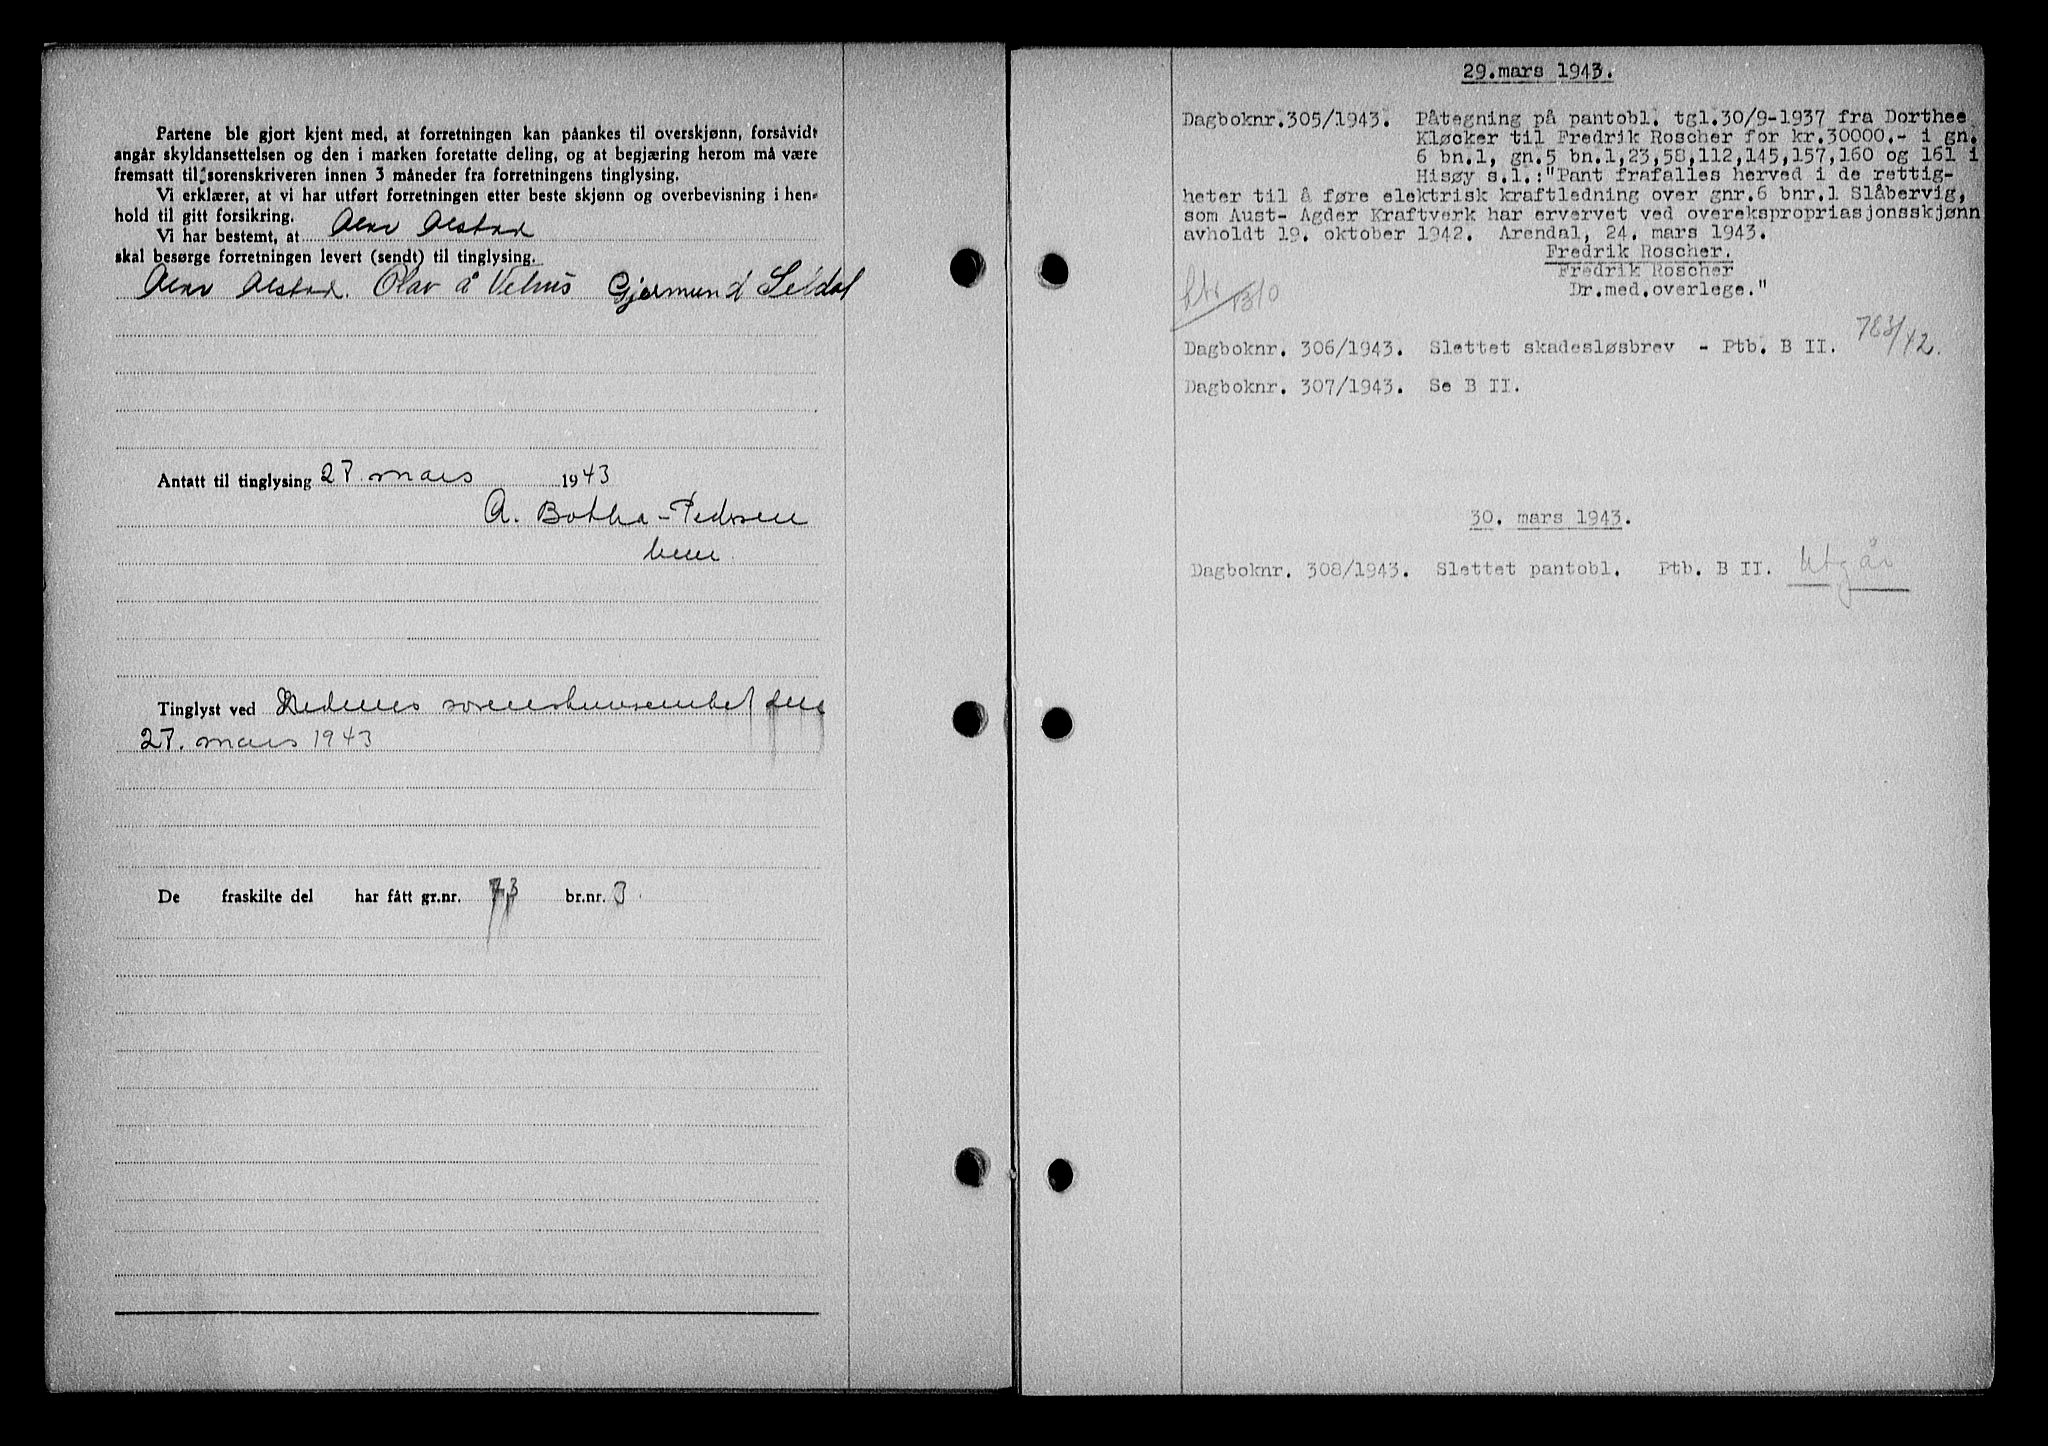 Partene ble gjort kjent med, at forretningen kan påankes til overskjønn, forsåvidt
angår skyldansettelsen og den i marken foretatte deling, og at begjæring herom må være
fremsatt til sorenskriveren innen 3 måneder fra forretningens tinglysing.
Vi erklærer, at vi har utført forretningen etter beste skjønn og overbevisning i hen-
hold til gitt forsikring.
Vi har bestemt, at Olav Alstad
skal besørge forretningen levert (sendt) til tinglysing.
Olav Alstad. Olav Å Vehus Gjermund Seldal
Antatt til tinglysing 27. mars 1943
A. Botha-Pedersen
Tinglyst ved Nedenes sorenskriverembet den
27. mars 1943
De fraskilte del har fått gr.nr. 73 br.nr. 3
29.mars 1943.
Dagboknr.305/1943. Påtegning på pantobl. tgl.30/9-1937 fra Dorthee
Kløcker til Fredrik Roscher for kr.30000.- i gn.
6 bn.1, gn.5 bn.1,23,58,112,145,157,160 og 161 i
Hisøy s.l.:"Pant frafalles herved i de rettig-
heter til å føre elektrisk kraftledning over gnr.6 bnr.1 Slåbervig,
som Aust- Agder Kraftverk har ervervet ved overekspropriasjonsskjønn
avholdt 19. oktober 1942. Arendal, 24. mars 1943.
Fredrik Roscher.
Fredrik Roscher
Dr.med.overlege."
1310
Dagboknr. 306/1943. Slettet skadesløsbrev - Ptb. B II. 783/42.
Dagboknr. 307/1943. Se B II.
30. mars 1943.
Dagboknr. 308/1943. Slettet pantobl. Ptb. B II. Utgår